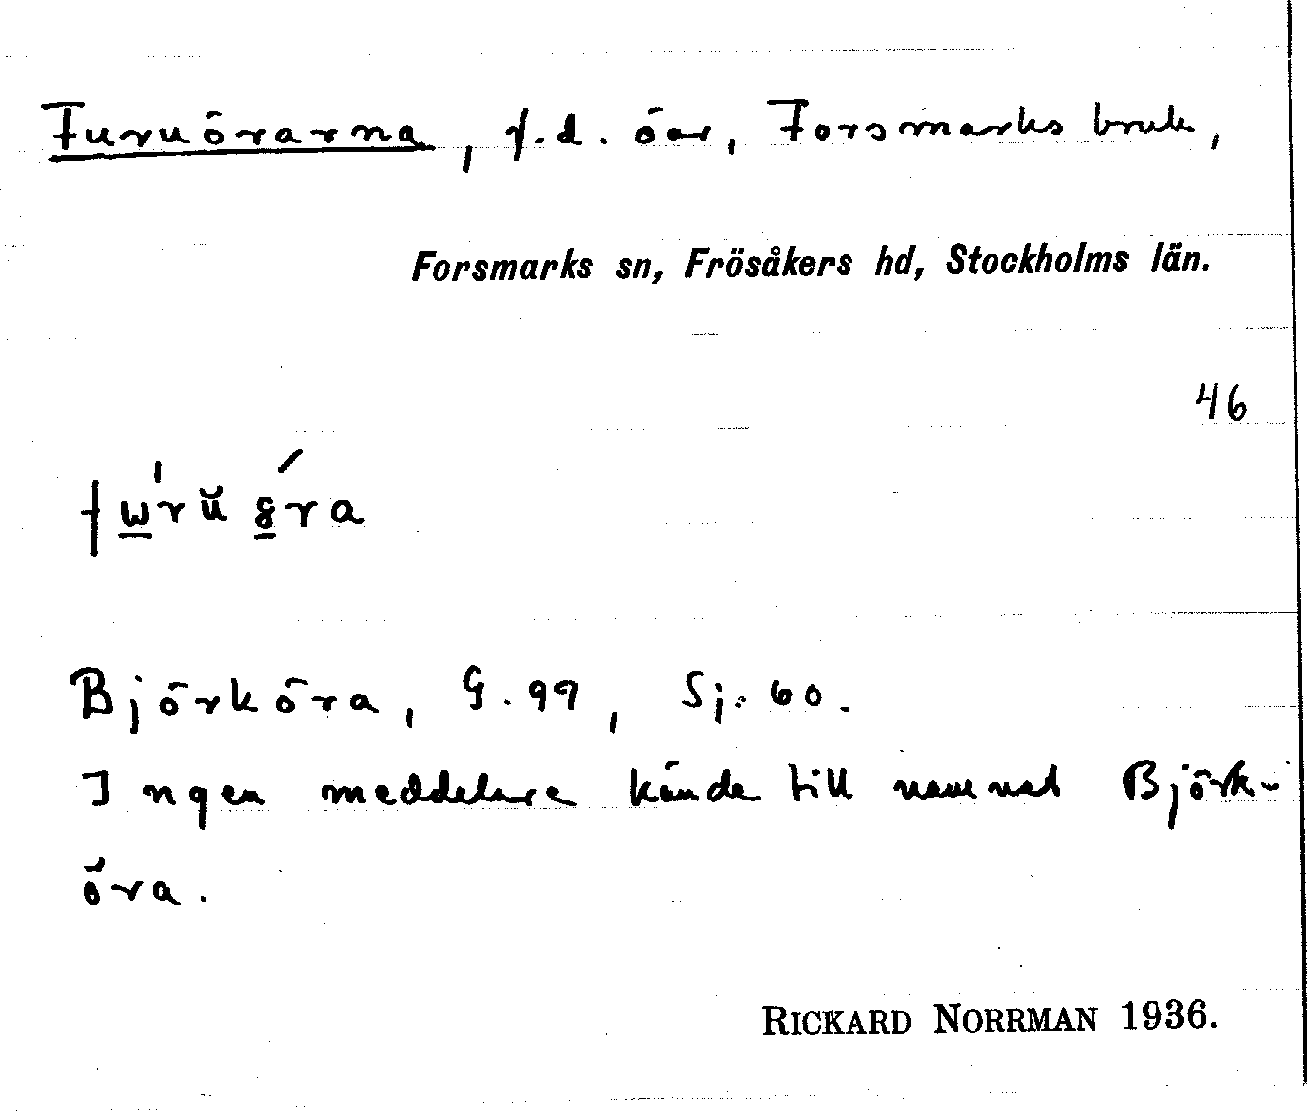 Furuörarna, f.d. öar, Forsmarks bruk,
Forsmarks sn, Frösåkers hd, Stockholms län.
46
Björköra, G. 99, Sj. 60.
Ingen meddelare kände till namnet Björk-
öra.
RICKARD NORRMAN 1936.